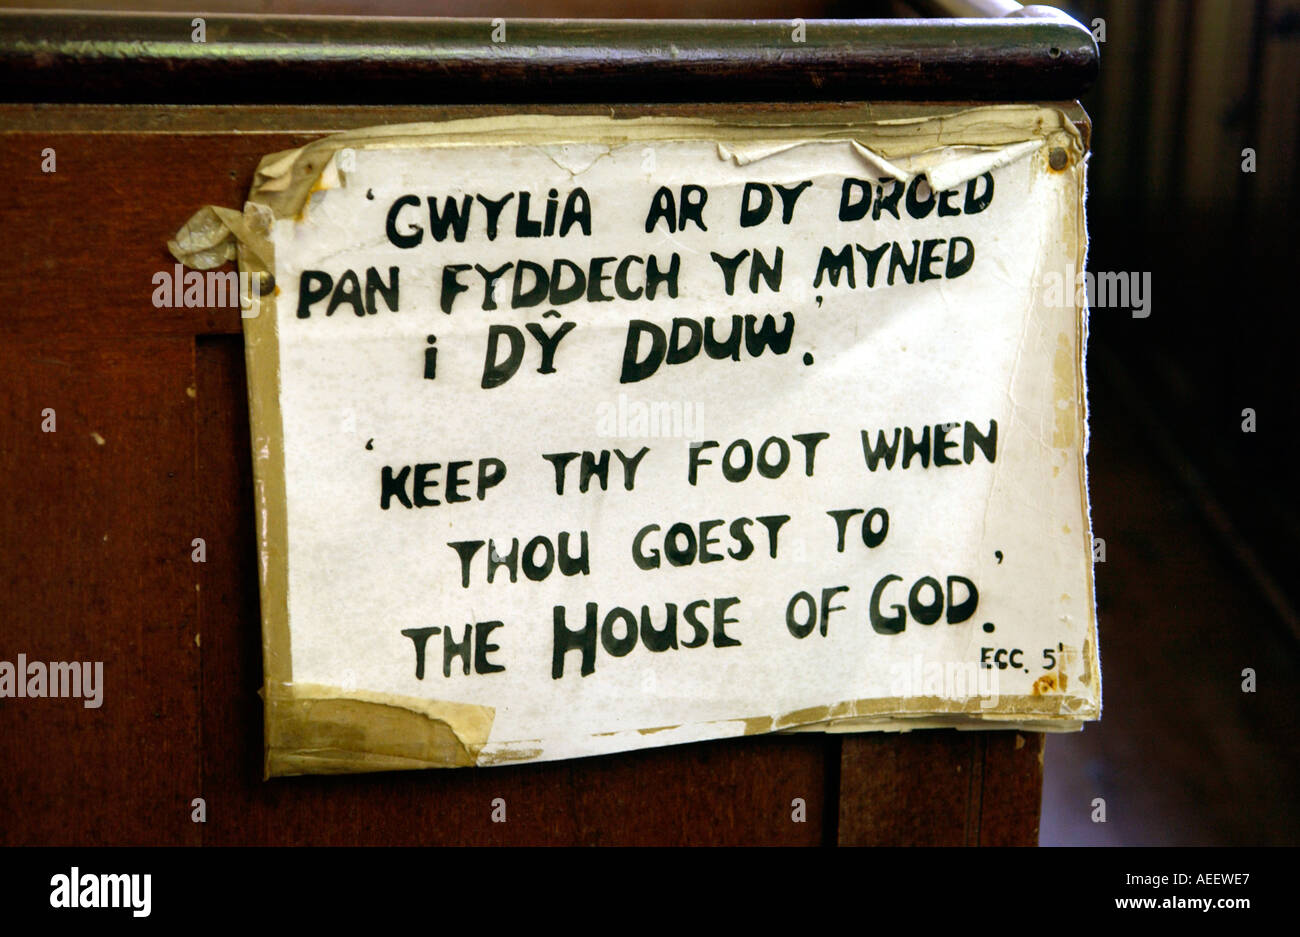 'GWYLiA AR DY DROED
PAN FYDDECH YN MYNED
i DŶ DDUW.'
'KEEP THY FOOT WHEN
THOU GOEST TO
THE HOUSE OF GOD.'
ECC. 5¹
alamy
Image ID: AEEWE7
www.alamy.com